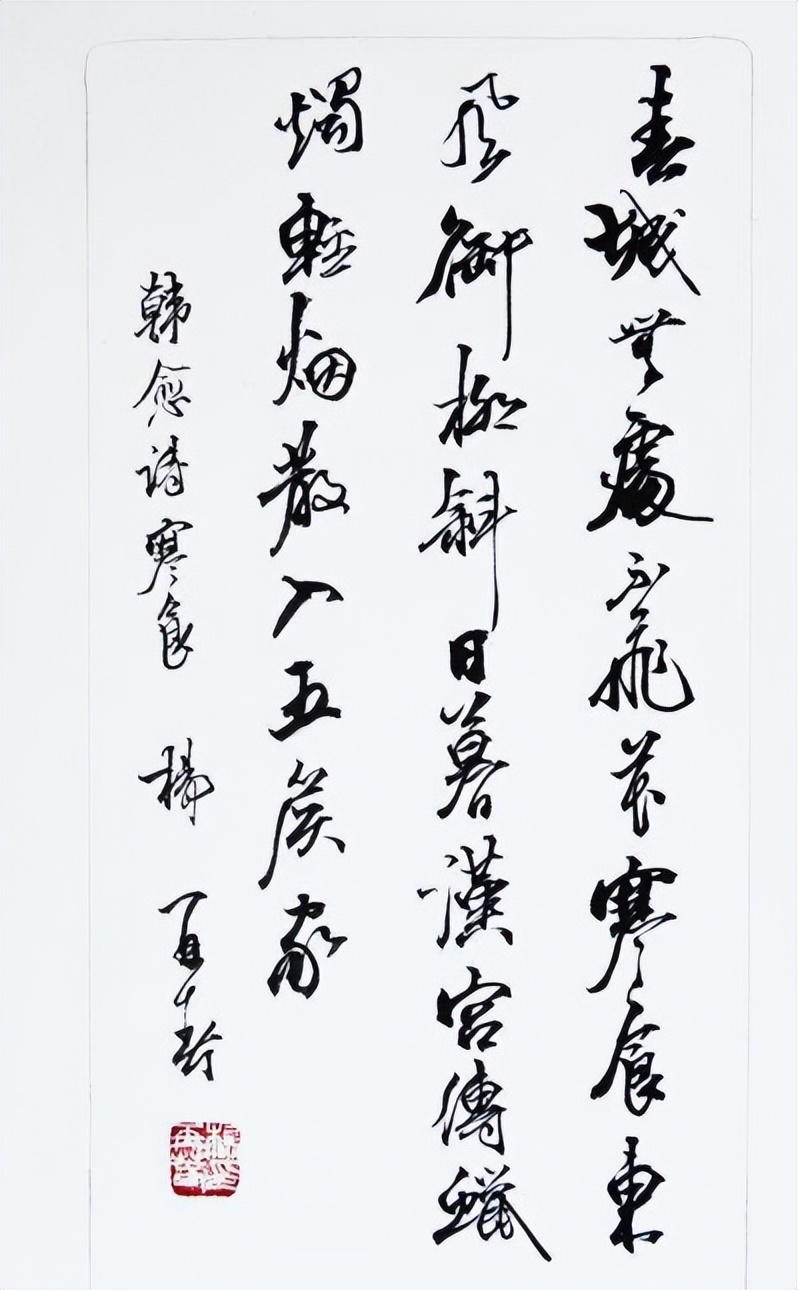 春城無處不飛花寒食東
風御柳斜日暮漢宮傳蠟
燭輕烟散入五侯家
韩愈诗寒食 楊百